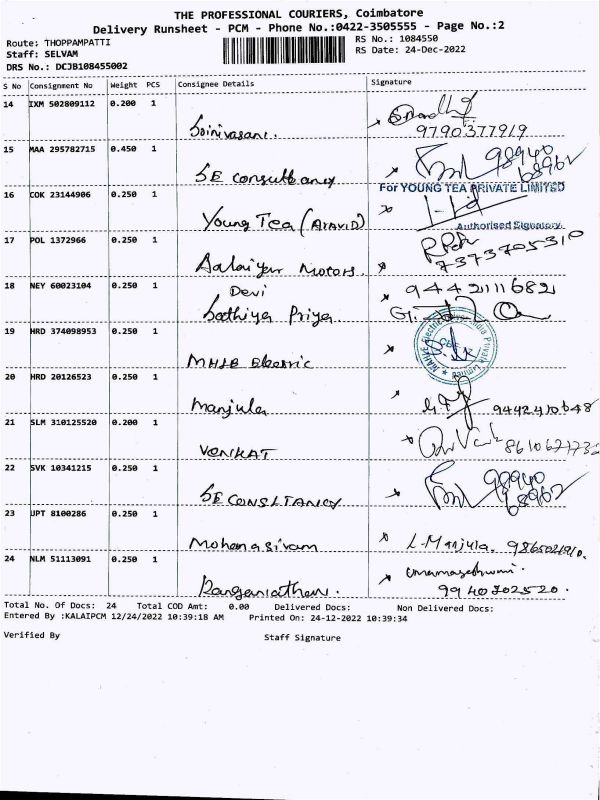 THE PROFESSIONAL COURIERS, Coimbatore
Delivery Runsheet - PCM - Phone No.:0422-3505555 - Page No.:2
Route: THOPPAMPATTI
RS No.: 1084550
Staff: SELVAM
RS Date: 24-Dec-2022
DRS No.: DCJB108455002
S No Consignment No Weight PCS Consignee Details Signature
14 IXM 502809112 0.200 1
Srinivasan. 9790377919
15 MAA 295782715 0.450 1
SE consultancy 98940 68962
For YOUNG TEA PRIVATE LIMITED
16 COK 23144906 0.250 1
Young Tea (Aravid)
Authorised Signatory
17 POL 1372966 0.250 1
Motors. 7373705310
18 NEY 60023104 0.250 1
Devi 9442111682
Sathiya Priya
19 HRD 374098953 0.250 1
MHLB Electric
20 HRD 20126523 0.250 1
Manjula 9442410648
21 SLM 310125520 0.200 1
VENKAT
22 SVK 10341215 0.250 1
SE CONSLTANCY 98940 68962
23 JPT 8100286 0.250 1
Mohanasivam L-Manjula.
24 NLM 51113091 0.250 1
Ranganathan. 9940702520.
Total No. Of Docs: 24 Total COD Amt: 0.00 Delivered Docs: Non Delivered Docs:
Entered By :KALAIPCM 12/24/2022 10:39:18 AM Printed On: 24-12-2022 10:39:34
Verified By Staff Signature